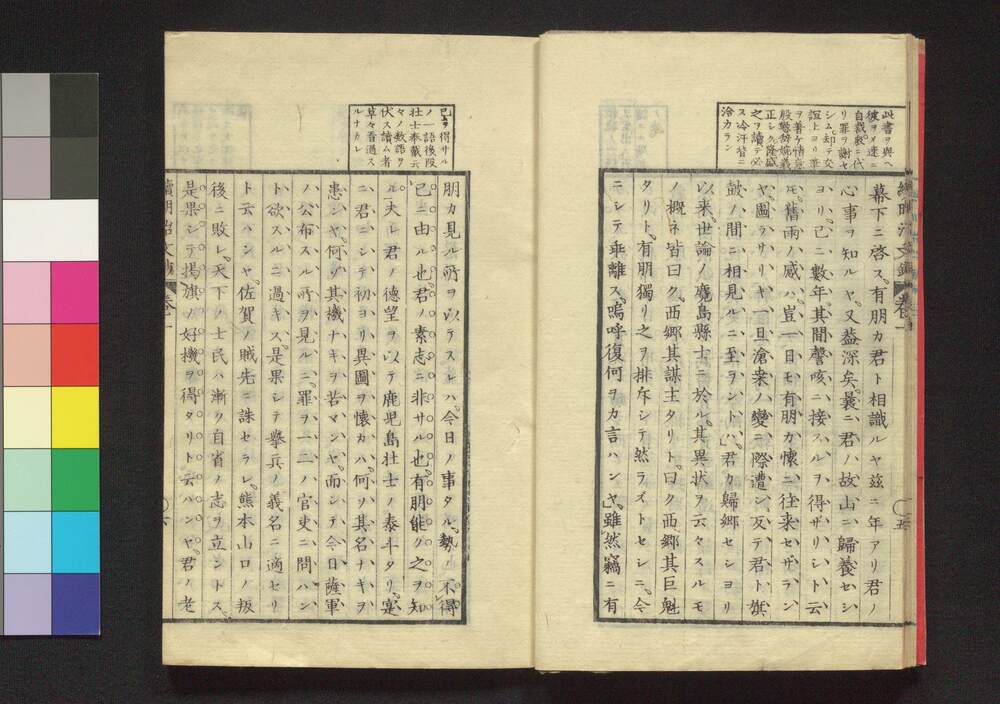 此書ヲ與ヘ
彼ヲシテ速ニ
自裁衆ニ代
リ罪ヲ謝セ
シム却テ交
誼上ヨリ筆
ヲ著ケ情意
殷懃辞婉義
正シク隆盛
之ヲ讀テ必
ス冷汗背ニ
洽カラン
幕下ニ啓ス。有朋カ君ト相識ルヤ茲ニ年アリ君ノ
心事ヲ知ルヤ。又益深矣。曩ニ君ノ故山ニ歸養セシ
ヨリ。已ニ數年。其間謦咳ニ接スルヲ得ザリシト云
モ。舊雨ノ感ハ。豈一日モ有朋カ懷ニ往来セザラン
ヤ。圖ラサリキ。一旦滄桒ノ變ニ際遭シ。反テ君ト旗
皷ノ間ニ相見ルニ至ラントハ」。君カ歸郷セシヨリ
以来。世論ノ麑島縣士ニ於ル。其異状ヲ云々スルモ
ノ。概子皆曰ク。西郷其謀主タリト。曰ク西郷其巨魁
タリト。有朋獨リ之ヲ排斥シテ然ラズトセシニ。今
ニシテ乖離ス。嗚呼復何ヲカ言ハンヤ」。雖然竊ニ有
續明治文鈔 卷一 〇五
已ヲ得サル
ノ一語後段
壮士奉戴云
々ノ数語ヲ
伏ス讀ム者
草々看過ス
ルナカレ
朋カ見ル所ヲ以テスレハ。今日ノ事タル。勢ノ不得
已ニ由ル也。君ノ素志ニ非サル也。有朋能ク之ヲ知
ル。夫レ君ノ德望ヲ以テ鹿児島壮士ノ泰斗タリ。寔
ニ君ニシテ初ヨリ異圖ヲ懷カハ。何ソ其名ナキヲ
患ンヤ。何ゾ其機ナキヲ苦マンヤ。而シテ今日薩軍
ノ公布スル所ヲ見ルニ。罪ヲ一二ノ官吏ニ問ハン
ト欲スルニ過キス。是果シテ擧兵ノ義名ニ適セリ
ト云ハンヤ。佐賀ノ賊先ニ誅セラレ。熊本山口ノ叛
後ニ敗レ。天下ノ士民ハ漸ク自省ノ志ヲ立ントス。
是果シテ揚旗ノ好機ヲ得タリト云ハンヤ。君ノ老
續明治文鈔 卷一 〇六